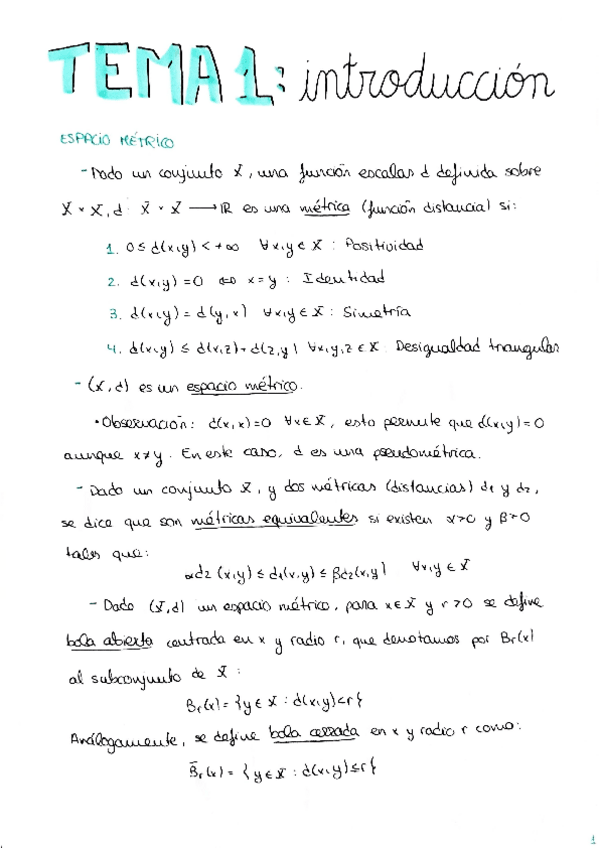 TEMA 1: introducción
ESPACIO MÉTRICO
- Dado un conjunto X, una función escalar d definida sobre
X × X, d: X × X → ℝ es una métrica (función distancia) si:
1. 0 ≤ d(x,y) < +∞ ∀x,y ∈ X : Positividad
2. d(x,y) = 0 ⇔ x = y : Identidad
3. d(x,y) = d(y,x) ∀x,y ∈ X : Simetría
4. d(x,y) ≤ d(x,z) + d(z,y) ∀x,y,z ∈ X Desigualdad triangular
- (X,d) es un espacio métrico.
• Observación: d(x,x)=0 ∀x ∈ X, esto permite que d(x,y)=0
aunque x≠y. En este caso, d es una pseudométrica.
- Dado un conjunto X, y dos métricas (distancias) d1 y d2,
se dice que son métricas equivalentes si existen α>0 y β>0
tales que:
αd2(x,y) ≤ d1(x,y) ≤ βd2(x,y) ∀x,y ∈ X
- Dado (X,d) un espacio métrico, para x∈X y r>0 se define
bola abierta centrada en x y radio r, que denotamos por Br(x)
al subconjunto de X:
Br(x) = {y ∈ X : d(x,y)<r}
Análogamente, se define bola cerrada en x y radio r como:
B̄r(x) = {y ∈ X : d(x,y)≤r}
1